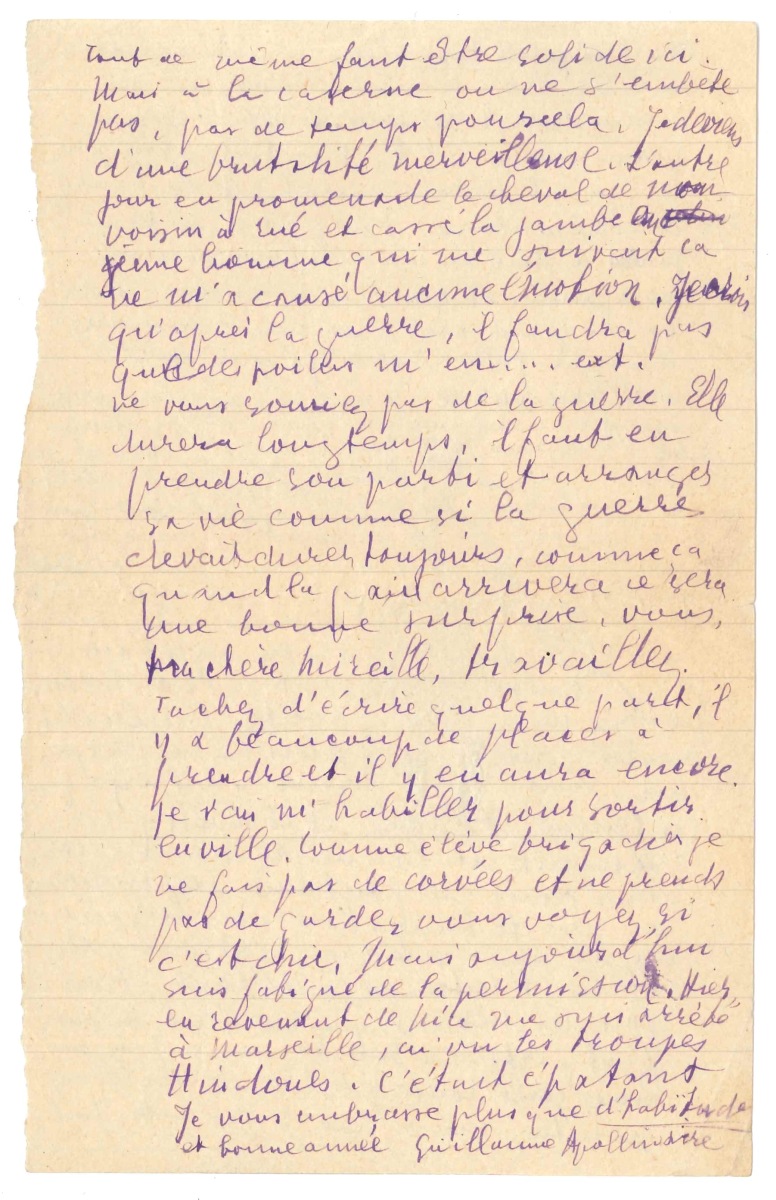 Tout de même faut être solide ici.
Mais à la caserne on ne s'embête
pas, pas de temps pour cela. Je deviens
d'une brutalité merveilleuse. L'autre
jour en promenade le cheval de mon
voisin à rué et cassé la jambe
jeune homme qui me suivait ça
ne m'a causé aucune émotion. Je crois
qu'après la guerre, il faudra pas
que des poilus m'em.... ent.
ne vous souciez pas de la guerre. Elle
durera longtemps, il faut en
prendre son parti et arranger
sa vie comme si la guerre
devait durer toujours, comme ça
quand la paix arrivera ce sera
une bonne surprise. vous,
ma chère Mireille, travaillez.
Tachez d'écrire quelque part, il
y a beaucoup de places à
prendre et il y en aura encore.
Je vais m'habiller pour sortir
en ville. Comme élève brigadier je
ne fais pas de corvées et ne prends
pas de garde, vous voyez si
c'est chic. Mais aujourd'hui
suis fatigué de la permission. Hier,
en revenant de Nice me suis arrêté
à Marseille, ai vu les troupes
Hindoues. C'était épatant
Je vous embrasse plus que d'habitude
et bonne année Guillaume Apollinaire